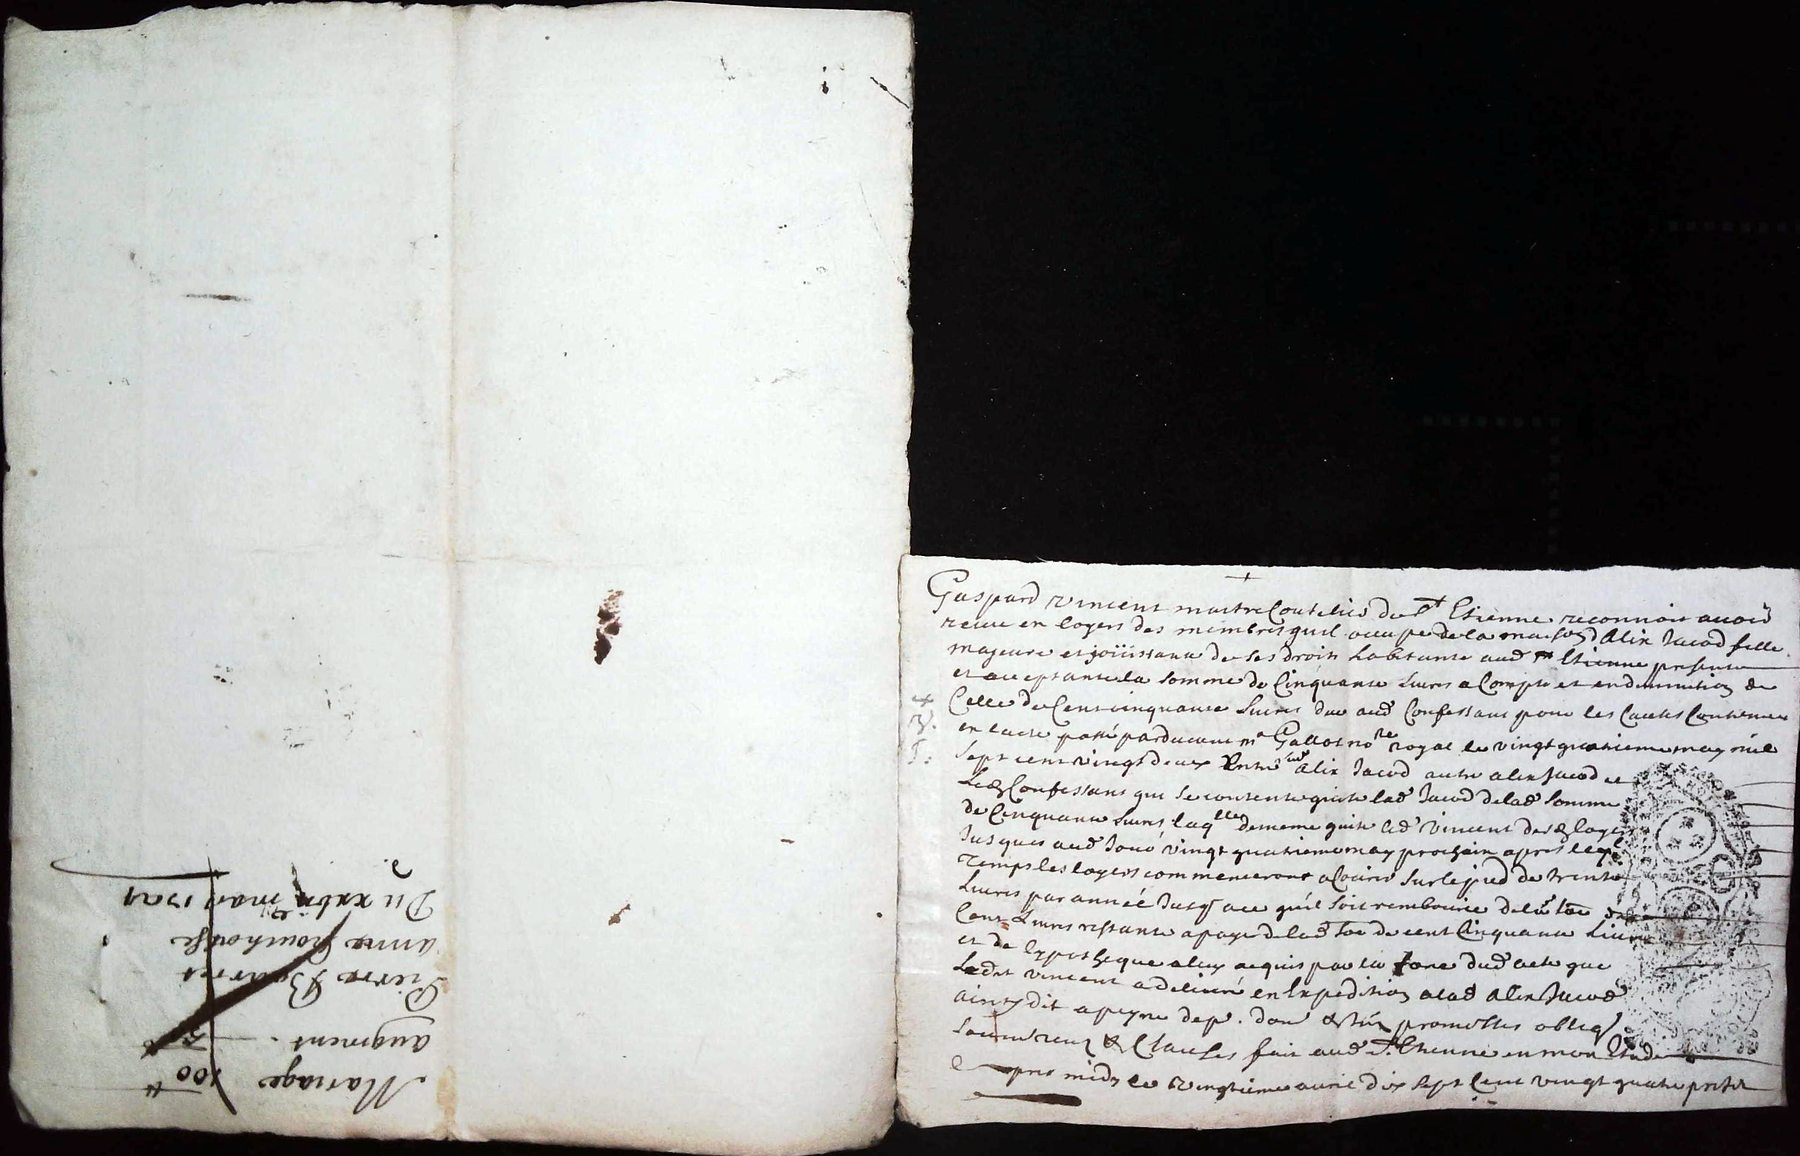 Mariage 100ᵗᵗ
augment. 5
Pierre
anne
Du mars 1724
Gaspard vincent maitre Coutelier de St Etienne reconnoit avoir
receu en loyers des membres quil occupe de la maison d'Alix Jacod fille
majeure et joüissante de ses droits habitante aud St Etienne presente
et acceptante la somme de Cinquante livres a Compte et en diminution de
Celle de Cent cinquante livres due aud Confessant pour les Causes Contenues
en lacte passé pardevant me Gallot nore royal le vingt quatrieme may mil
sept cent vingt deux Entre lad alix Jacod autre alix Jacod et
Led Confessant qui se contente quitte lad Jacod de lad somme
de Cinquante livres laqlle de meme quitte led Vincent desd loyers
Jusques aud Jour vingt quatrieme may prochain apres leql
Temps les loyers commenceront a Courir sur le pied de trente
livres par année Jusqu a ce quil soit rembourcé de la soe de
Cent livres restante a payer de lad soe de cent Cinquante livres
et de hypotheque a luy acquis par la dud acte que
Ledit vincent a delivré en Expedition a lad Alix Jacod
ainsy dit a peyne dep. promesses obligs
soumis renoz & Clauses fait aud St Etienne en mon Etude
apres midy le vingtieme avril dix sept Cent vingt quatre